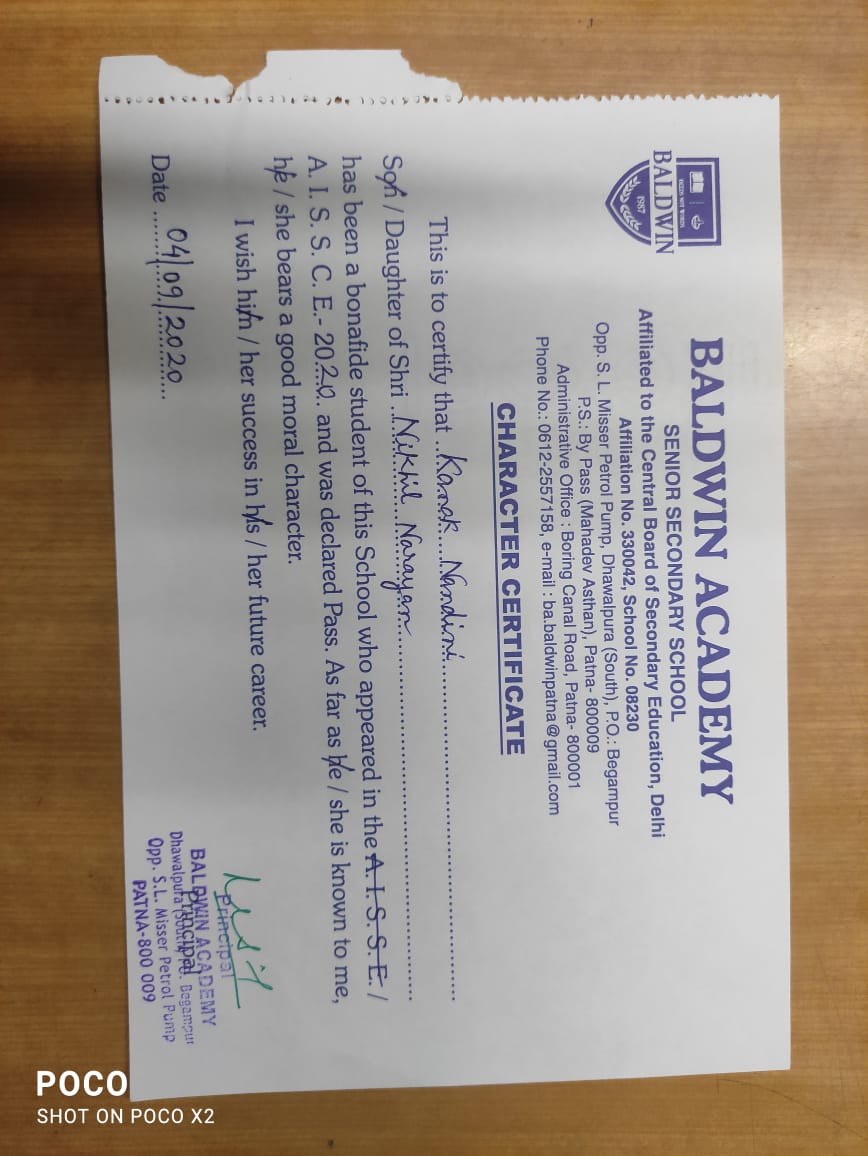 BALDWIN
1987
BALDWIN ACADEMY
SENIOR SECONDARY SCHOOL
Affiliated to the Central Board of Secondary Education, Delhi
Affiliation No. 330042, School No. 08230
Opp. S. L. Misser Petrol Pump, Dhawalpura (South), P.O.: Begampur
P.S.: By Pass (Mahadev Asthan), Patna- 800009
Administrative Office : Boring Canal Road, Patna- 800001
Phone No.: 0612-2557158, e-mail : ba.baldwinpatna@gmail.com
CHARACTER CERTIFICATE
This is to certify that Kanak Nandini
Son / Daughter of Shri Nikhil Narayan
has been a bonafide student of this School who appeared in the A. I. S. S. E. /
A. I. S. S. C. E.- 2020 and was declared Pass. As far as he / she is known to me,
he / she bears a good moral character.
I wish him / her success in his / her future career.
Date 04/09/2020
Principal
Principal
BALDWIN ACADEMY
Dhawalpura (South) P.O. Begampur
Opp. S.L. Misser Petrol Pump
PATNA-800 009
POCO
SHOT ON POCO X2